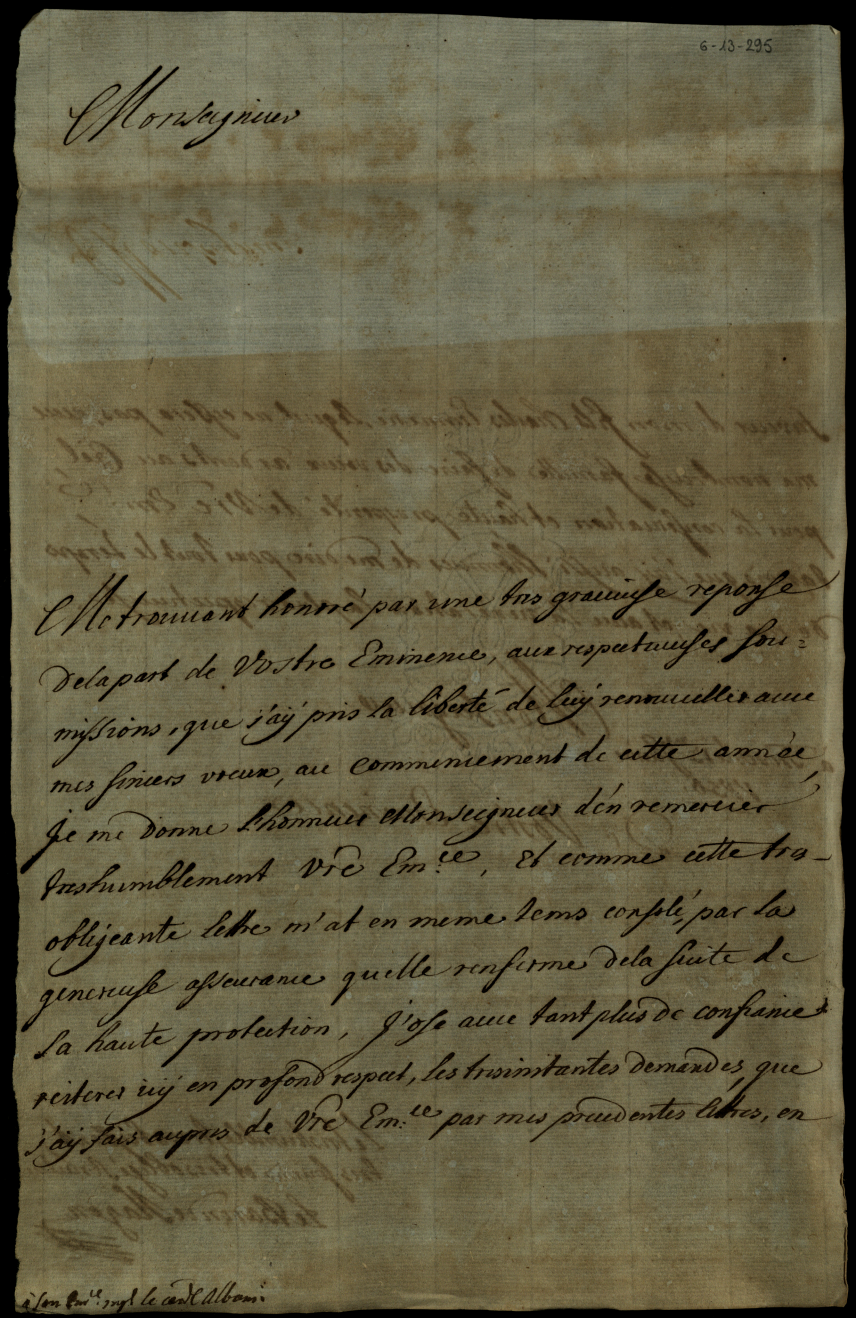 6-13-295
Monseigneur
Me trouvant honoré par une tres gracieuse reponse
de la part de Vostre Eminence, aux respectueuses sou=
missions, que j'aÿ pris la liberté de luÿ renouveller avec
mes sincers vœux, au commencement de cette année,
Je me donne l'honneur Monseigneur d'en remercier
treshumblement Vr̃e Em:ce, Et comme cette tres-
obligeante lettre m'at en meme tems consolé, par la
genereuse asseurance quelle renferme dela suite de
sa haute protection, J'ose avec tant plus de confiance
reiterer icÿ en profond respect, les tresinstantes demandes, que
j'aÿ fais aupres de Vr̃e Em:ce par mes precedentes lettres, en
à son Em:ce mgr le card: Albani